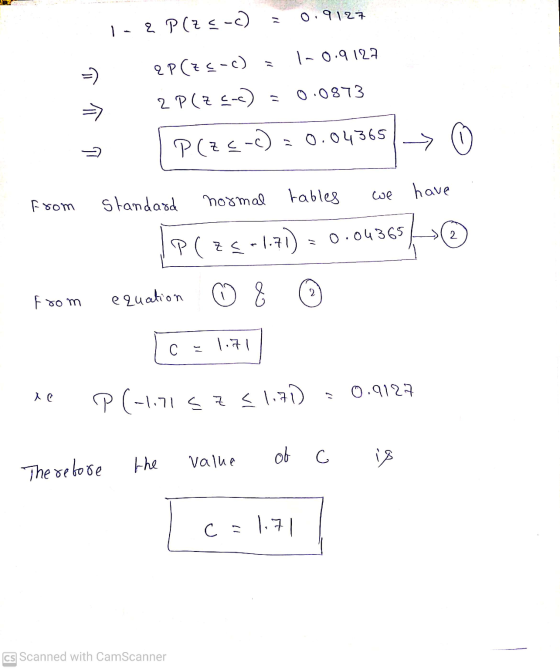 1 - 2 P(z ≤ -c) = 0.9127
⇒ 2P(z ≤ -c) = 1 - 0.9127
⇒ 2 P(z ≤ -c) = 0.0873
⇒ P(z ≤ -c) = 0.04365 → ①
From Standard normal tables we have
P(z ≤ -1.71) = 0.04365 → ②
From equation ① & ②
c = 1.71
ie P(-1.71 ≤ z ≤ 1.71) = 0.9127
Therefore the value of c is
c = 1.71
CS Scanned with CamScanner